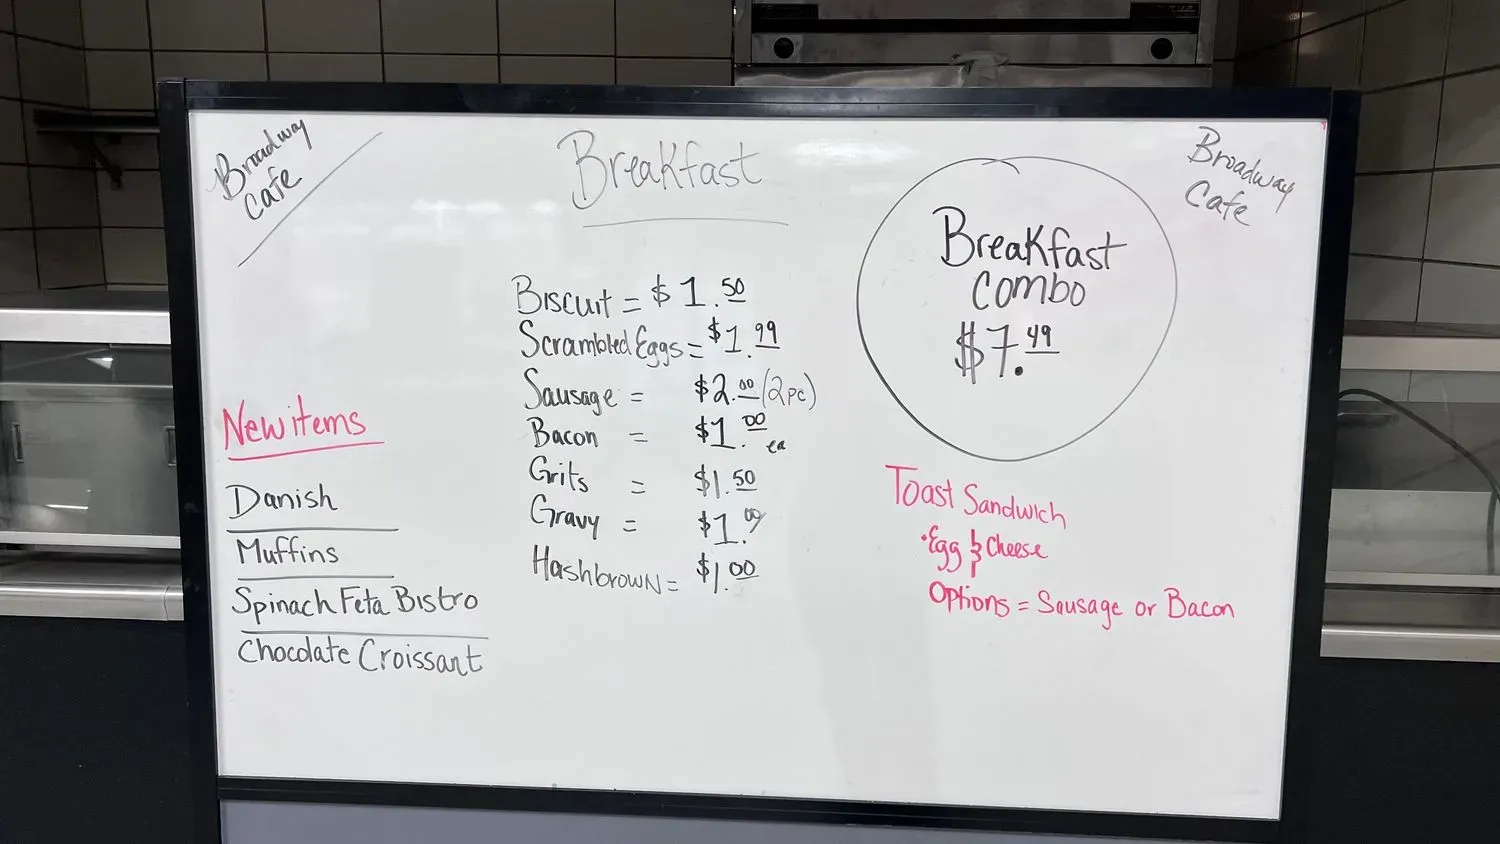 Broadway
Cafe
Breakfast
Broadway
Cafe
Breakfast
Combo
$7.49
Biscuit = $1.50
Scrambled Eggs = $1.99
Sausage = $2.00 (2pc)
Bacon = $1.00 ea
Grits = $1.50
Gravy = $1.00
Hashbrown = $1.00
New items
Danish
Muffins
Spinach Feta Bistro
Chocolate Croissant
Toast Sandwich
•Egg & Cheese
Options = Sausage or Bacon